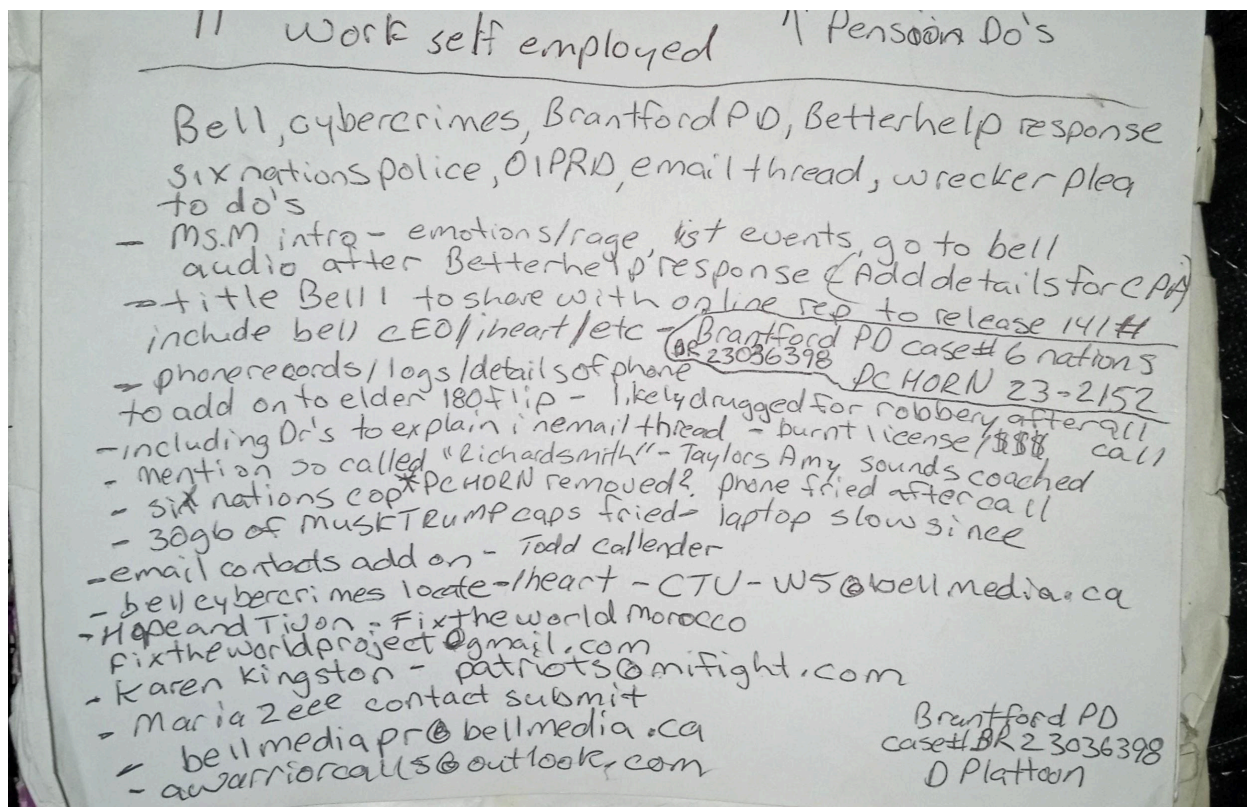 work self employed Pension Do's
Bell, cybercrimes, Brantford PD, Betterhelp response
six nations police, OIPRD, email thread, wrecker plea
to do's
- Ms.M intro - emotions/rage, list events, go to bell
audio after Betterhelp response (Add details for CPA)
- title Bell 1 to share with online rep to release 141#
include bell CEO/iheart/etc - Brantford PD case# 6 nations
BR 23036398 PC HORN 23-2152
- phone records/logs/details of phone
to add on to elder 180 flip - likely drugged for robbery after all
- including Dr's to explain in email thread - burnt license/$$$ call
- mention so called "Richardsmith" - Taylors Amy sounds coached
- six nations cop *PC HORN removed? phone fried after call
- 30gb of MUSKTRUMP caps fried - laptop slow since
- email contacts add on - Todd Callender
- bell cybercrimes locate - Iheart - CTU - W5@bellmedia.ca
- Hope and Tivon - Fixtheworld Morocco
fixtheworldproject@gmail.com
- Karen Kingston - patriots@mifight.com
- Maria Zeee contact submit
- bellmediapr@bellmedia.ca
- awarriorcalls@outlook.com
Brantford PD
case# BR23036398
D Plattoon